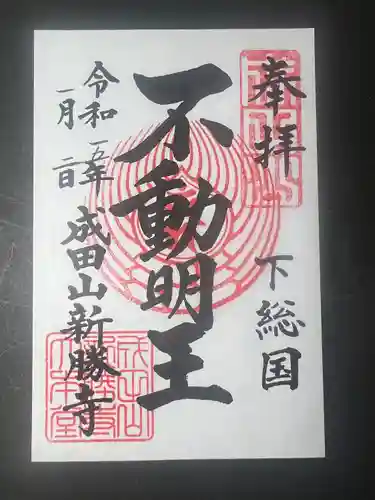 奉拝
下総国
不動明王
成田山新勝寺
令和五年
一月二日